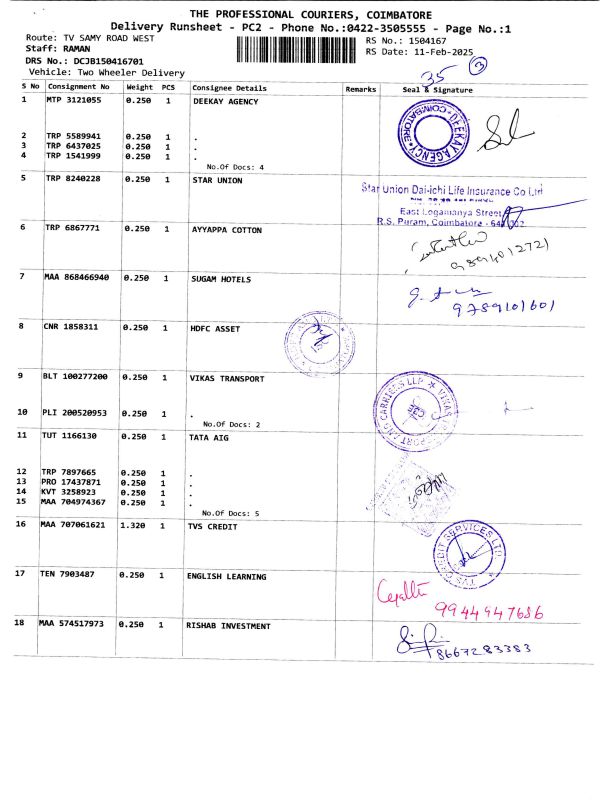 THE PROFESSIONAL COURIERS, COIMBATORE
Delivery Runsheet - PC2 - Phone No.:0422-3505555 - Page No.:1
Route: TV SAMY ROAD WEST
RS No.: 1504167
Staff: RAMAN
RS Date: 11-Feb-2025
DRS No.: DCJB150416701
Vehicle: Two Wheeler Delivery
35 3
S No Consignment No Weight PCS Consignee Details Remarks Seal & Signature
1 MTP 3121055 0.250 1 DEEKAY AGENCY
DEEKAY AGENCY COIMBATORE
2 TRP 5589941 0.250 1 .
3 TRP 6437025 0.250 1 .
4 TRP 1541999 0.250 1 .
No.Of Docs: 4
5 TRP 8240228 0.250 1 STAR UNION
Star Union Dai-ichi Life Insurance Co Ltd
East Logamanya Street
R.S. Puram, Coimbatore - 641 002
6 TRP 6867771 0.250 1 AYYAPPA COTTON
9894012721
7 MAA 868466940 0.250 1 SUGAM HOTELS
9789101601
8 CNR 1858311 0.250 1 HDFC ASSET
9 BLT 100277200 0.250 1 VIKAS TRANSPORT
10 PLI 200520953 0.250 1 .
No.Of Docs: 2
11 TUT 1166130 0.250 1 TATA AIG
12 TRP 7897665 0.250 1 .
13 PRO 17437871 0.250 1 .
14 KVT 3258923 0.250 1 .
15 MAA 704974367 0.250 1 .
No.Of Docs: 5
16 MAA 707061621 1.320 1 TVS CREDIT
TVS CREDIT SERVICES LTD
17 TEN 7903487 0.250 1 ENGLISH LEARNING
9944947686
18 MAA 574517973 0.250 1 RISHAB INVESTMENT
8667283383